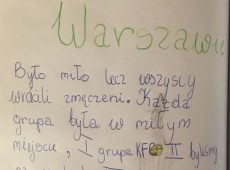 Warszawie
Było miło lecz wszyscy
wrócili zmęczeni. Każda
grupa była w miłym
miejscu, I grupa KFC II byliśmy